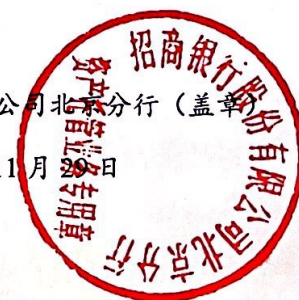 公司北京分行（盖章）
1月29日
招商银行股份有限公司北京分行
资产托管业务专用章